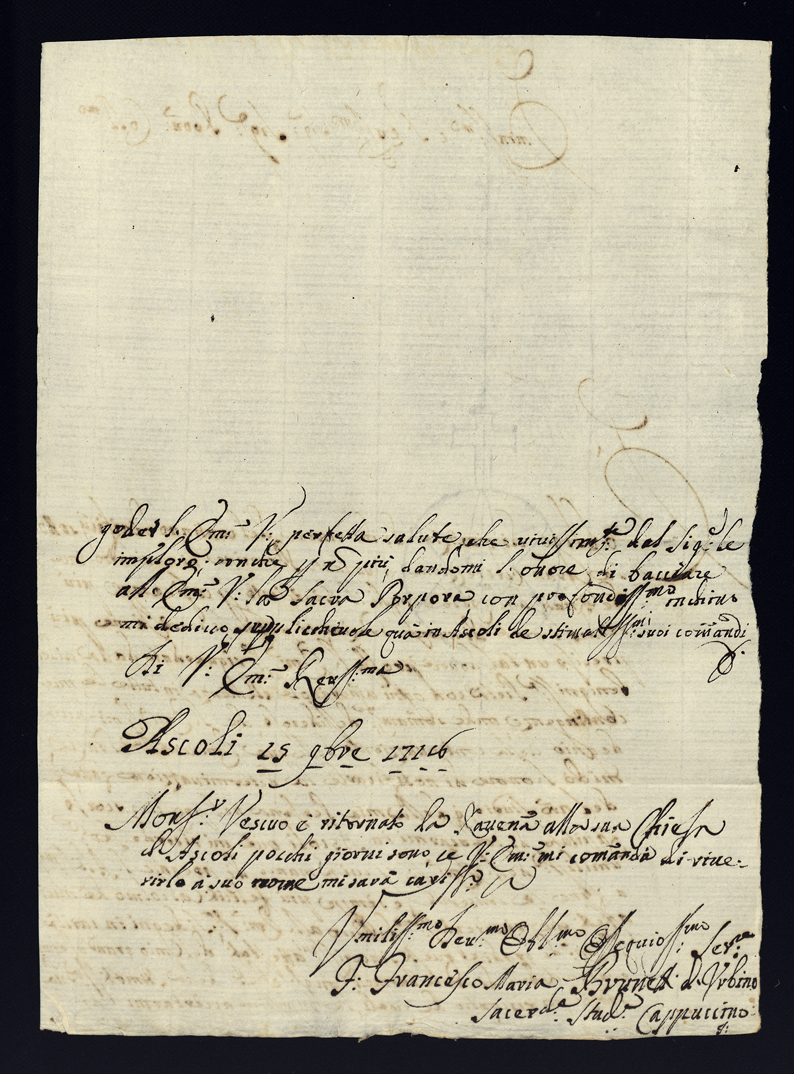 goder l: Em:ᵃ V: perfetta salute, che vivissim:ᵗᵉ dal Sig:ʳᵉ le
imploro; onche più, dandomi l: onore di bacciare
all: Em:ᵃ V: la Sacra Porpora, con profondiss:ᵐᵒ inchino
mi dedico supplichevole quà in Ascoli de stimatiss:ᵐⁱ suoi comandi
Di V: Em:ᵃ Reuss:ᵐᵃ
Ascoli 15 9bre 1716
Monsʳ: Vescuo è ritornato da Rauena alla sua Chiesa
di Ascoli pocchi giorni sono, se V: Em:ᵃ mi comanda di rive-
rirlo à suo nome mi sarà cariss:º
Umiliss:ᵐᵒ Deu:ᵐᵒ Obl:ᵐᵒ Ossequioss:ᵐᵒ Ser:ʳᵉ
F: Francesco Maria Brunetti d. Urbino
Sacerd:ᵉ Stud:ᵉ Cappuccino